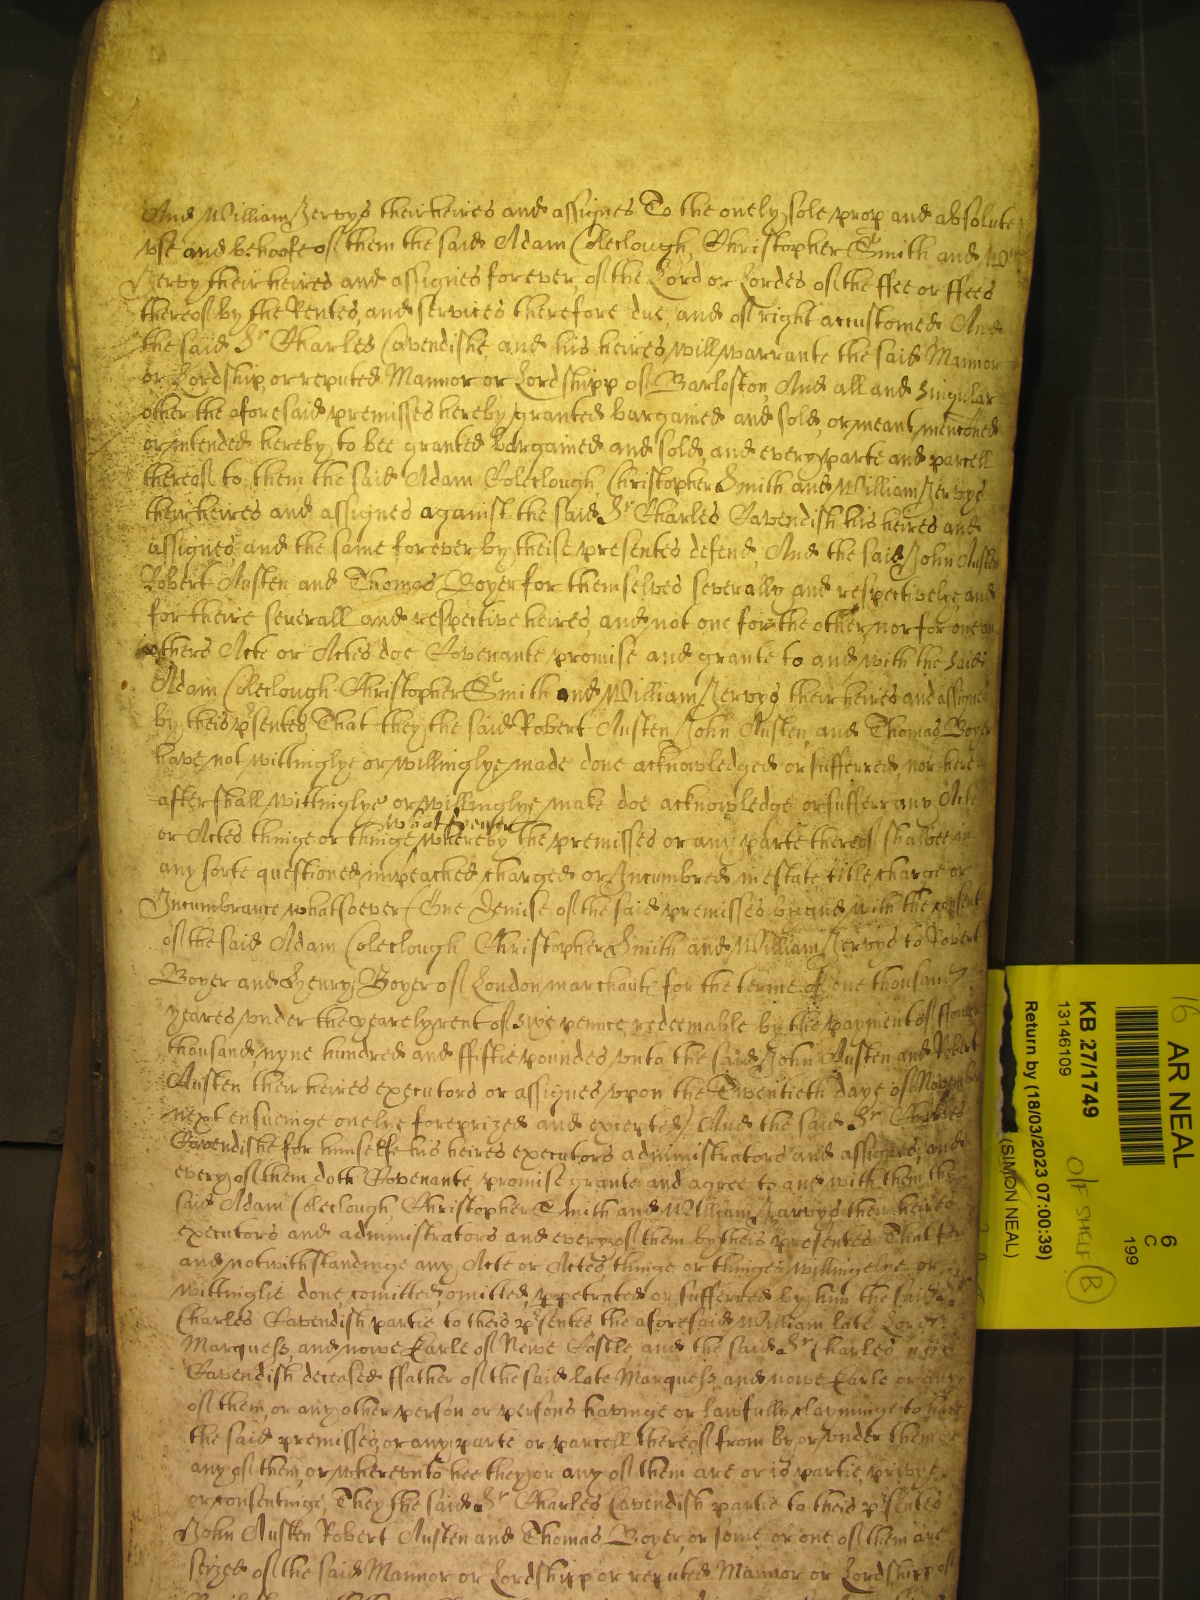 And William Jervys their heires and assignes To the onely sole prop and absolute
vse and behoofe of them the said Adam Coleclough, Christopher Smith and Wm
Jervy their heires and assignes forever of the Lord or Lordes of the ffee or ffees
thereof by the Rentes, and services therefore due, and of right accustomed And
the said Sr Charles Cavendishe, and his heires, will warrante the said Mannor
or Lordship, or reputed Mannor or Lordshipp of Barloston, And all and Singular
other the aforesaid premisses hereby granted bargained and sold, or meant mentioned
or intended hereby to bee granted Bargained and sold, and every parte and parcell
thereof to them the said Adam Coleclough, Christopher Smith and William Jervys
their heires and assignes against the said Sr Charles Cavendish his heires and
assignes, and the same forever by theise presentes defend, And the said John Austen
Robert Austen and Thomas Boyer for themselves severally and respectivelye, and
for theire severall and respective heires, and not one for the other, nor for one an
others Acte or Actes doe Covenante promise and grante to and with the said
Adam Coleclough Christopher Smith and William Jervys their heires and assignes
by theis psentes, That they the said Robert Austen John Austen, and Thomas Boyer
have not wittinglye or willinglye made done acknowledged or sufferred, nor here
after shall wittinglye or willinglye make doe acknowledge or suffer any Acte
whatsoever
or Actes thinge or thinge, whereby the premisses or any parte thereof shalbee in
any sorte questioned, impeached, charged or Incumbred in estate title charge or
Incumbrance whatsoever (One Demise of the said premisses by and with the consent
of the said Adam Coleclough Christopher Smith and William Jervys to Robert
Boyer and Henry Boyer of London marchaute for the terme of one thousand
yeares, vnder the yearely rent of Twe pence, redeemable by the payment of
thousand nyne hundred and ffiftie poundes vnto the said John Austen and Robert
Austen their heires executors or assignes vpon the Twentieth daye of November
next ensueinge onelye foreprized and excepted) And the said Sr Charles
Cavendishe for himselfe his heires executors administrators and assignes, and
every of them doth Covenante, promise grante and agree to and with them the
said Adam Coleclough, Christopher Smith and William Jarvys their heires
executors and administrators and every of them by theis presentes That for
and notwithstandinge any Acte or Actes, thinge or thinges willingelye or
wittinglie done, comitted, omitted, ppetrated or sufferred by him the said Sr
Charles Cavendish partie to theis psentes the aforesaid William late Lord
Marquess, and nowe Earle of Newe Castle and the said Sr Charles
Cavendish deceased ffather of the said late Marquess, and nowe Earle or any
of them, or any other person or persons havinge or lawfully clayminge to have
the said premisses, or any parte or parcell thereof from by, or vnder them or
any of them, or wherevnto hee they, or any of them are or is partie privye
or consentinge, They the said Sr Charles Cavendish partie to theis psentes
John Austen Robert Austen and Thomas Boyer, or some or one of them are
seized of the said Mannor or Lordshipp or reputed Mannor or Lordshipp of
16 AR NEAL
6
C
199
KB 27/1749
13146109
O/F SHELF B
Return by (18/03/2023 07:00:39)
(SIMON NEAL)